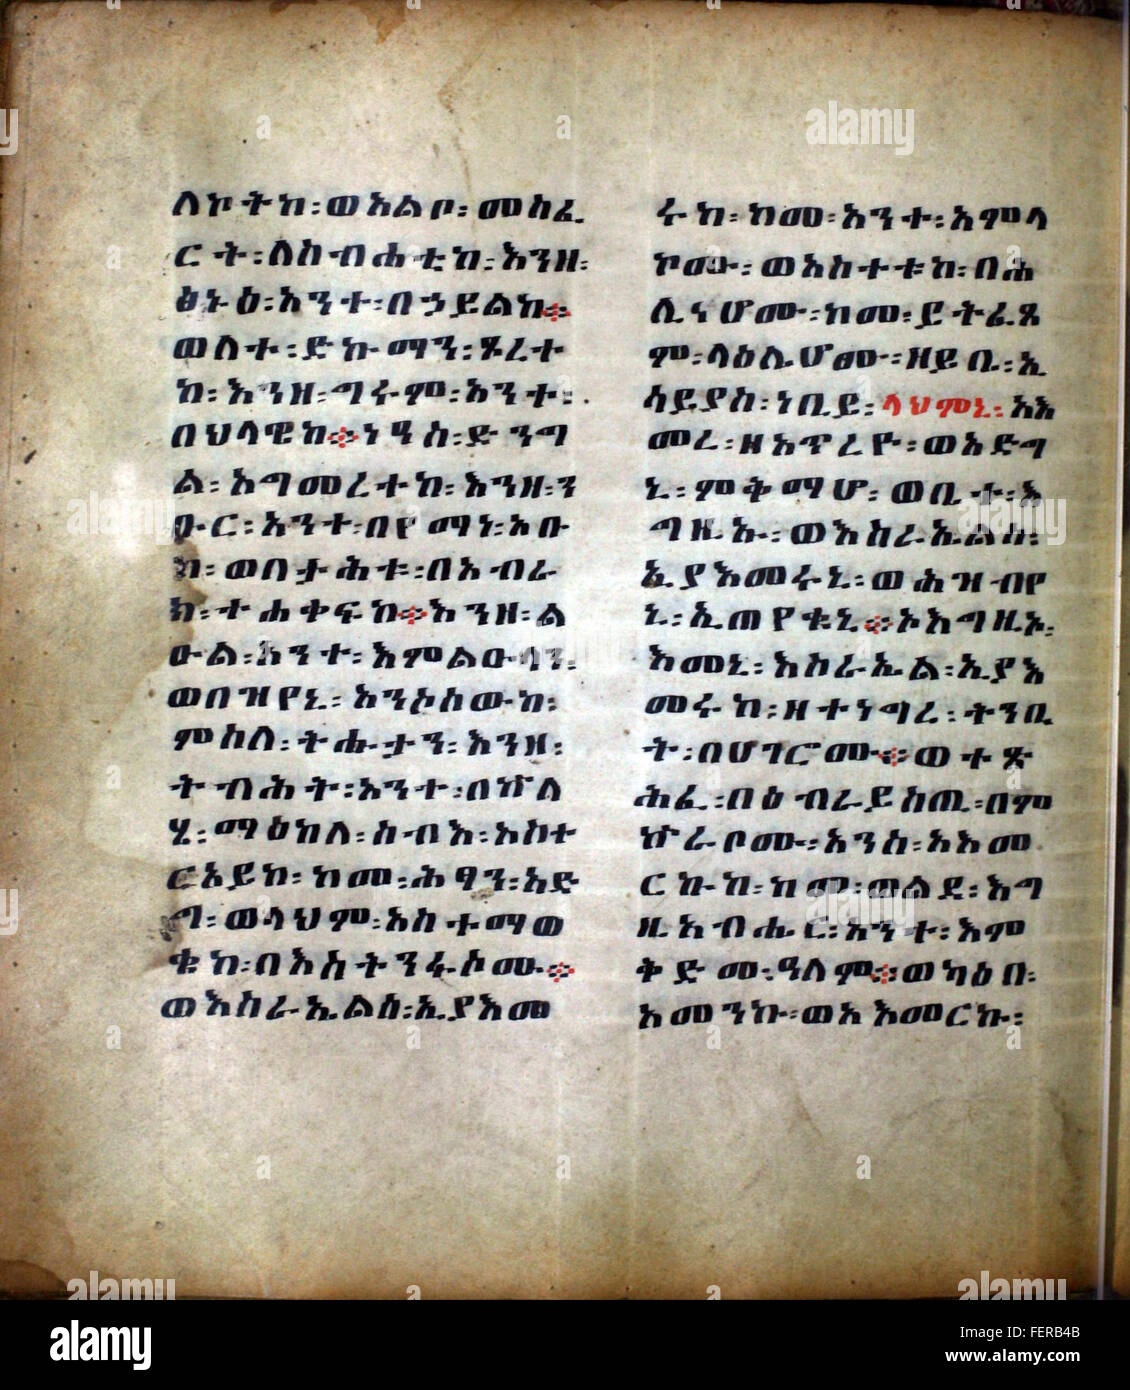 ለኮትከ፡ወአልቦ፡መስፈ
ርት፡ለስብሐቲከ፡እንዘ፡
ፅኑዕ፡አንተ፡በኃይልከ፨
ወለተ፡ድኩማን፡ጾረተ
ከ፡እንዘ፡ግሩም፡አንተ፡
በህላዌከ፨ነዓስ፡ድንግ
ል፡አግመረተከ፡እንዘ፡ን
ዑር፡አንተ፡በየማነ፡አቡ
ከ፡ወበታሕቱ፡በአብራ
ክ፡ተሐቀፍከ፨እንዘ፡ል
ዑል፡አንተ፡እምልዑላን፡
ወበዝየኒ፡አንሶስወከ፡
ምስለ፡ትሑታን፡እንዘ፡
ትብሕት፡አንተ፡በኵለ
ሂ፡ማዕከለ፡ሰብእ፡አስተ
ርአይከ፡ከመ፡ሕፃን፡አድ
ግ፡ወላህም፡አስተማወ
ቁከ፡በእስትንፋሶሙ፨
ወእስራኤልሰ፡ኢያእመ
ሩከ፡ከመ፡አንተ፡አምላ
ኮሙ፡ወአስተቱከ፡በሐ
ሊነሆሙ፡ከመ፡ይትፈጸ
ም፡ላዕሌሆሙ፡ዘይቤ፡ኢ
ሳይያስ፡ነቢይ፡ላህምኒ፡አእ
መረ፡ዘአጥረዮ፡ወአድግ
ኒ፡ምቅማሆ፡ወቤተ፡እ
ግዚኡ፡ወእስራኤልሰ፡
ኢያእመሩኒ፡ወሕዝብየ
ኒ፡ኢጠየቁኒ፨ኦእግዚኦ፡
እመኒ፡እስራኤል፡ኢያእ
መሩከ፡ዘተነግረ፡ትንቢ
ት፡በሀገርሙ፨ወተጽ
ሕፈ፡በዕብራይስጢ፡በም
ኵራቦሙ፡አንሰ፡አእመ
ርኩከ፡ከመ፡ወልደ፡እግ
ዚአብሔር፡አንተ፡እም
ቅድመ፡ዓለም፨ወካዕበ፡
አመንኩ፡ወአእመርኩ፡
alamy
FERB4B
www.alamy.com